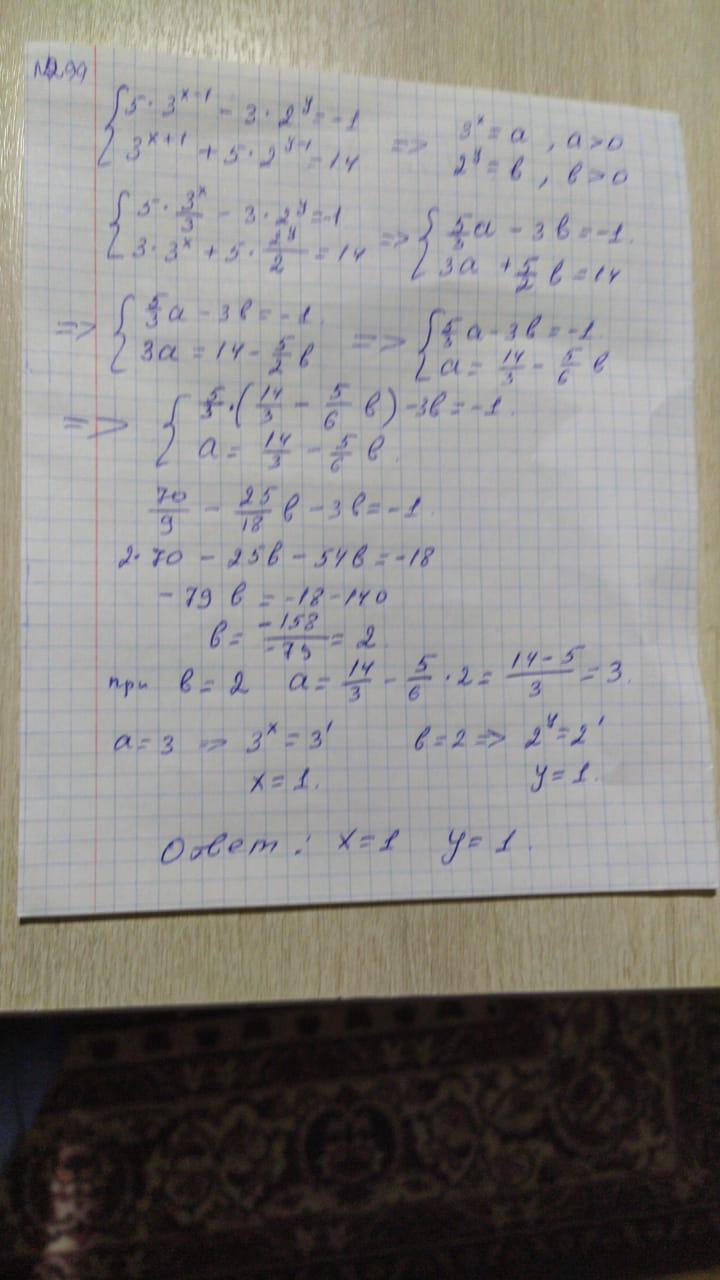 №299
{ 5·3^(x-1) - 3·2^y = -1
{ 3^(x+1) + 5·2^(y-1) = 14 => 3^x = a, a>0
2^y = b, b>0
{ 5·3^x/3 - 3·2^y = -1
{ 3·3^x + 5·2^y/2 = 14 => { 5/3 a - 3b = -1.
{ 3a + 5/2 b = 14
=> { 5/3 a - 3b = -1.
{ 3a = 14 - 5/2 b => { 5/3 a - 3b = -1
{ a = 14/3 - 5/6 b
=> { 5/3·(14/3 - 5/6 b) - 3b = -1.
{ a = 14/3 - 5/6 b.
70/9 - 25/18 b - 3b = -1.
2·70 - 25b - 54b = -18
-79 b = -18-140
b = -158/-79 = 2
при b = 2 a = 14/3 - 5/6 · 2 = 14-5/3 = 3.
a = 3 => 3^x = 3^1 b = 2 => 2^y = 2^1
x = 1. y = 1.
Ответ: x = 1 y = 1.